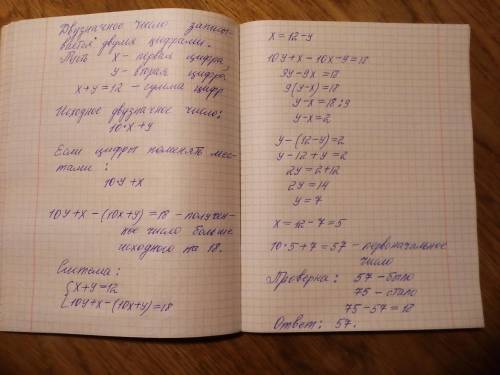 Двузначное число записы-
вается двумя цифрами.
Пусть x - первая цифра
y - вторая цифра
x+y=12 - сумма цифр
Исходное двузначное число:
10·x+y
Если цифры поменять мес-
тами:
10·y+x
10y+x-(10x+y)=18 - получен-
ное число больше
исходного на 18.
Система:
{x+y=12
{10y+x-(10x+y)=18
x=12-y
10y+x-10x-y=18
9y-9x=18
9(y-x)=18
y-x=18:9
y-x=2
y-(12-y)=2
y-12+y=2
2y=2+12
2y=14
y=7
x=12-7=5
10·5+7=57 - первоначальное
число
Проверка: 57 - было
75 - стало
75-57=18
Ответ: 57.